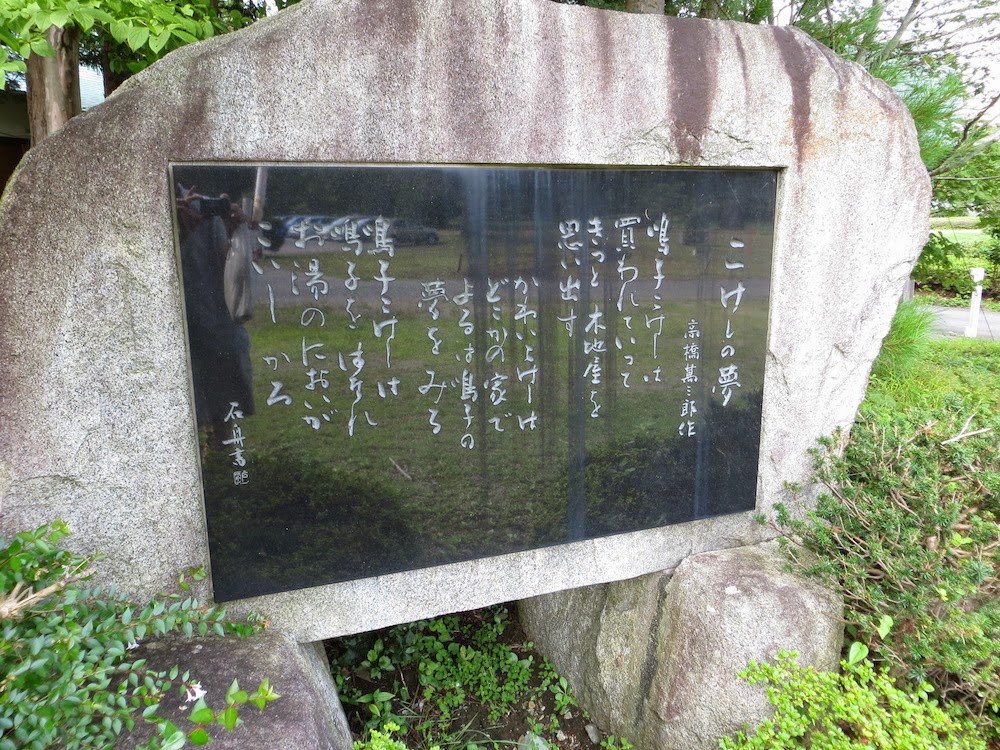 こけしの夢
高橋甚三郎作
鳴子こけしは
買われていって
きっと木地屋を
思い出す
かわいいこけしは
どこかの家で
よるは鳴子の
夢をみる
鳴子こけしは
鳴子をはなれ
お湯のにおいが
こいしかろ
石舟書